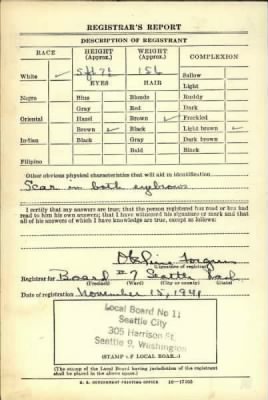 REGISTRAR'S REPORT
DESCRIPTION OF REGISTRANT
RACE HEIGHT (Approx.) WEIGHT (Approx.) COMPLEXION
White ✓ 5 ft 7½ 156 Sallow
EYES HAIR Light
Negro Blue Blonde Ruddy
Gray Red Dark
Oriental Hazel Brown ✓ Freckled
Brown ✓ Black Light brown ✓
Indian Black Gray Dark brown
Bald Black
Filipino
Other obvious physical characteristics that will aid in identification
Scar in both eyebrows
I certify that my answers are true; that the person registered has read or has had
read to him his own answers; that I have witnessed his signature or mark and that
all of his answers of which I have knowledge are true, except as follows:
(Signature of registrar)
Registrar for Board #7 Seattle
(Precinct) (Ward) (City or county) (State)
Date of registration November 15, 1941
Local Board No 11
Seattle City
305 Harrison St.
Seattle 9, Washington
(STAMP OF LOCAL BOARD)
(The stamp of the Local Board having jurisdiction of the registrant
shall be placed in the above space.)
U. S. GOVERNMENT PRINTING OFFICE